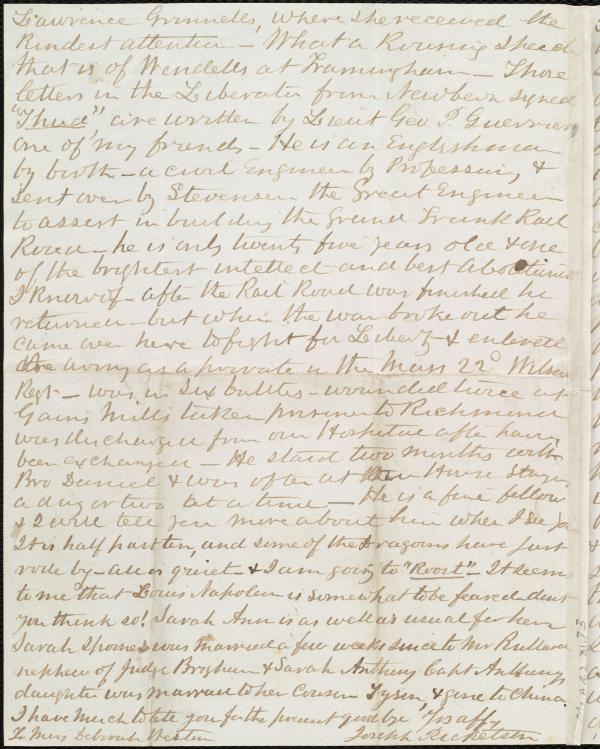 Lawrence Grinnells, where she received the
kindest attention – What a Rousing Speech
that is of Wendells at Framingham – Those
letters in the Liberator from Newbern signed
"Thud" are written by Lieut Geo P. Guerrier
one of my friends – He is an Englishman
by birth – a civil Engineer by Profession, &
sent over by Stevenson the Great Engineer
to assist in building the Grand Trunk Rail
Road – he is only twenty five years old & one
of the brightest intellect and best Abolitionist
I know of – after the Rail Road was finished he
returned – but when the war broke out he
came over here to fight for Liberty & entered
the army as a private in the Mass 22d Wilson
Regt – was in six battles – wounded twice at
Gains Mills taken prisoner to Richmond
was discharged from our Hospital after having
been exchanged – He staid two months with
Bro Daniel & was often at House Staying
a day or two at a time – He is a fine fellow
& I will tell you more about him when I see you
It is half past ten, and some of the dragoons have just
rode by – all is quiet – & I am going to "Roost" – It seems
to me that Louis Napolean is somewhat to be feared dont
you think so! Sarah Ann is as well as usual for her
Sarah was married a few weeks since to Mr Bullard
nephew of Judge Brigham & Sarah Anthony Capt Anthonys
daughter was married to her Cousin Tyson & gone to China.
I have much to tell you for the present good bye Yrs affy
To Miss Deborah Weston Joseph Ricketson